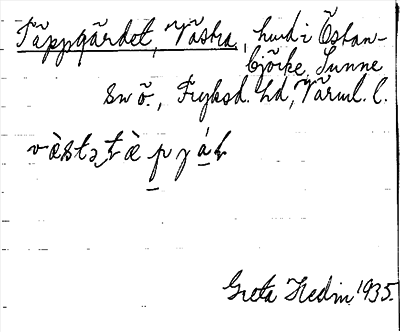 Täppgärdet, Västra, hmd i Östan-
björke, Sunne
sn ö., Fryksd. hd, Värml. l.
Greta Hedin 1935.